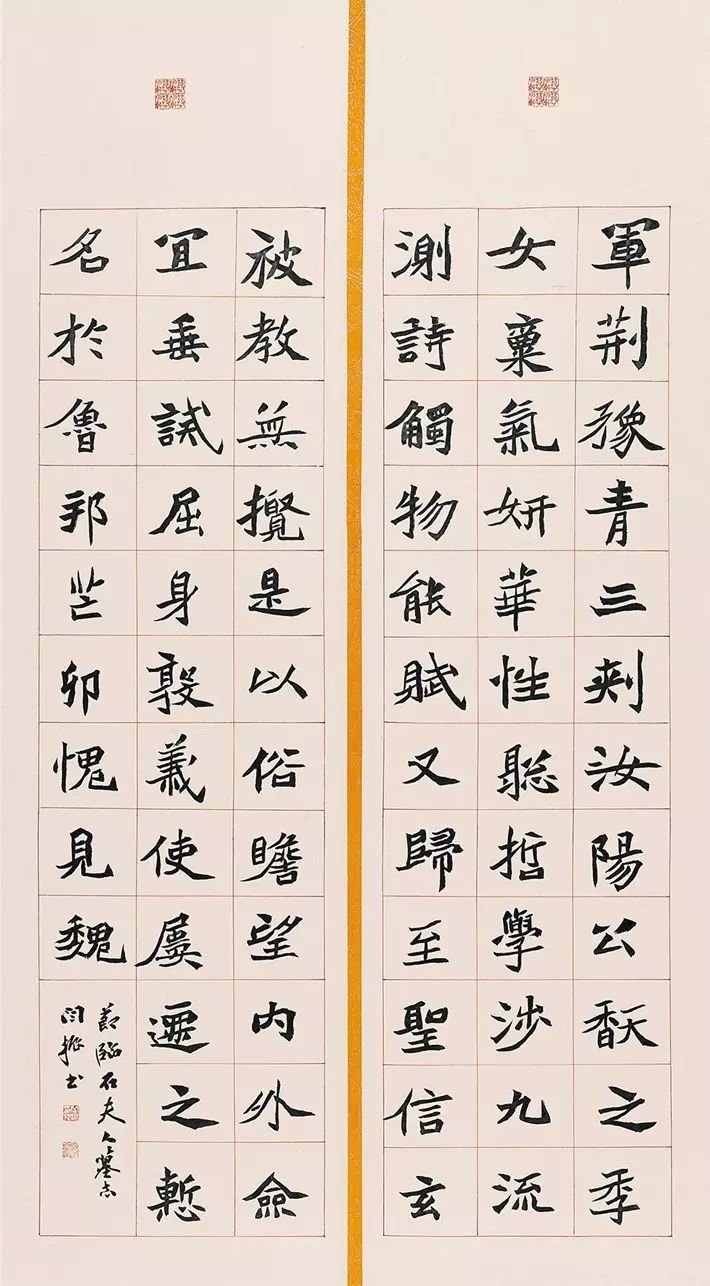 軍荆豫青三刾汝陽公馛之季
女稟氣妍華性聡哲學涉九流
測詩觸物能賦又歸至聖信玄
被教無攪是以俗瞻望内外僉
宜垂試屈身敦義使屢遷之慙
名於魯邦芒卯愧見魏
節臨石夫人墓志
闫振书